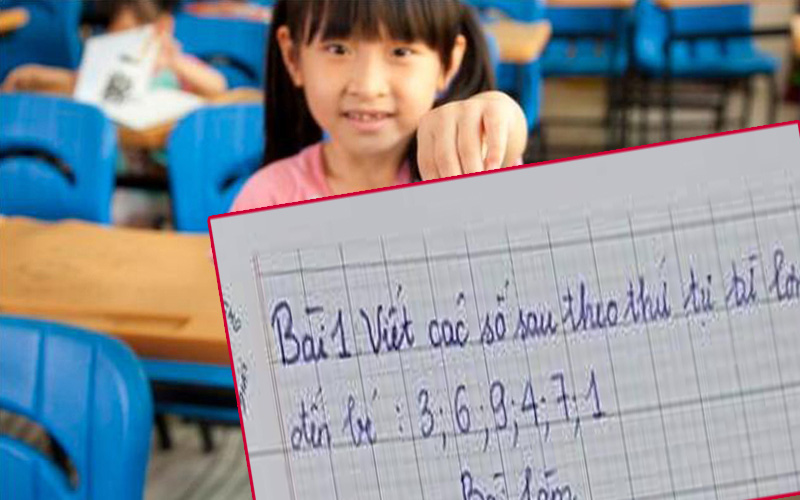 Bài 1 Viết các số sau theo thứ tự từ lớn
đến bé : 3;6;9;4;7;1
Bài làm